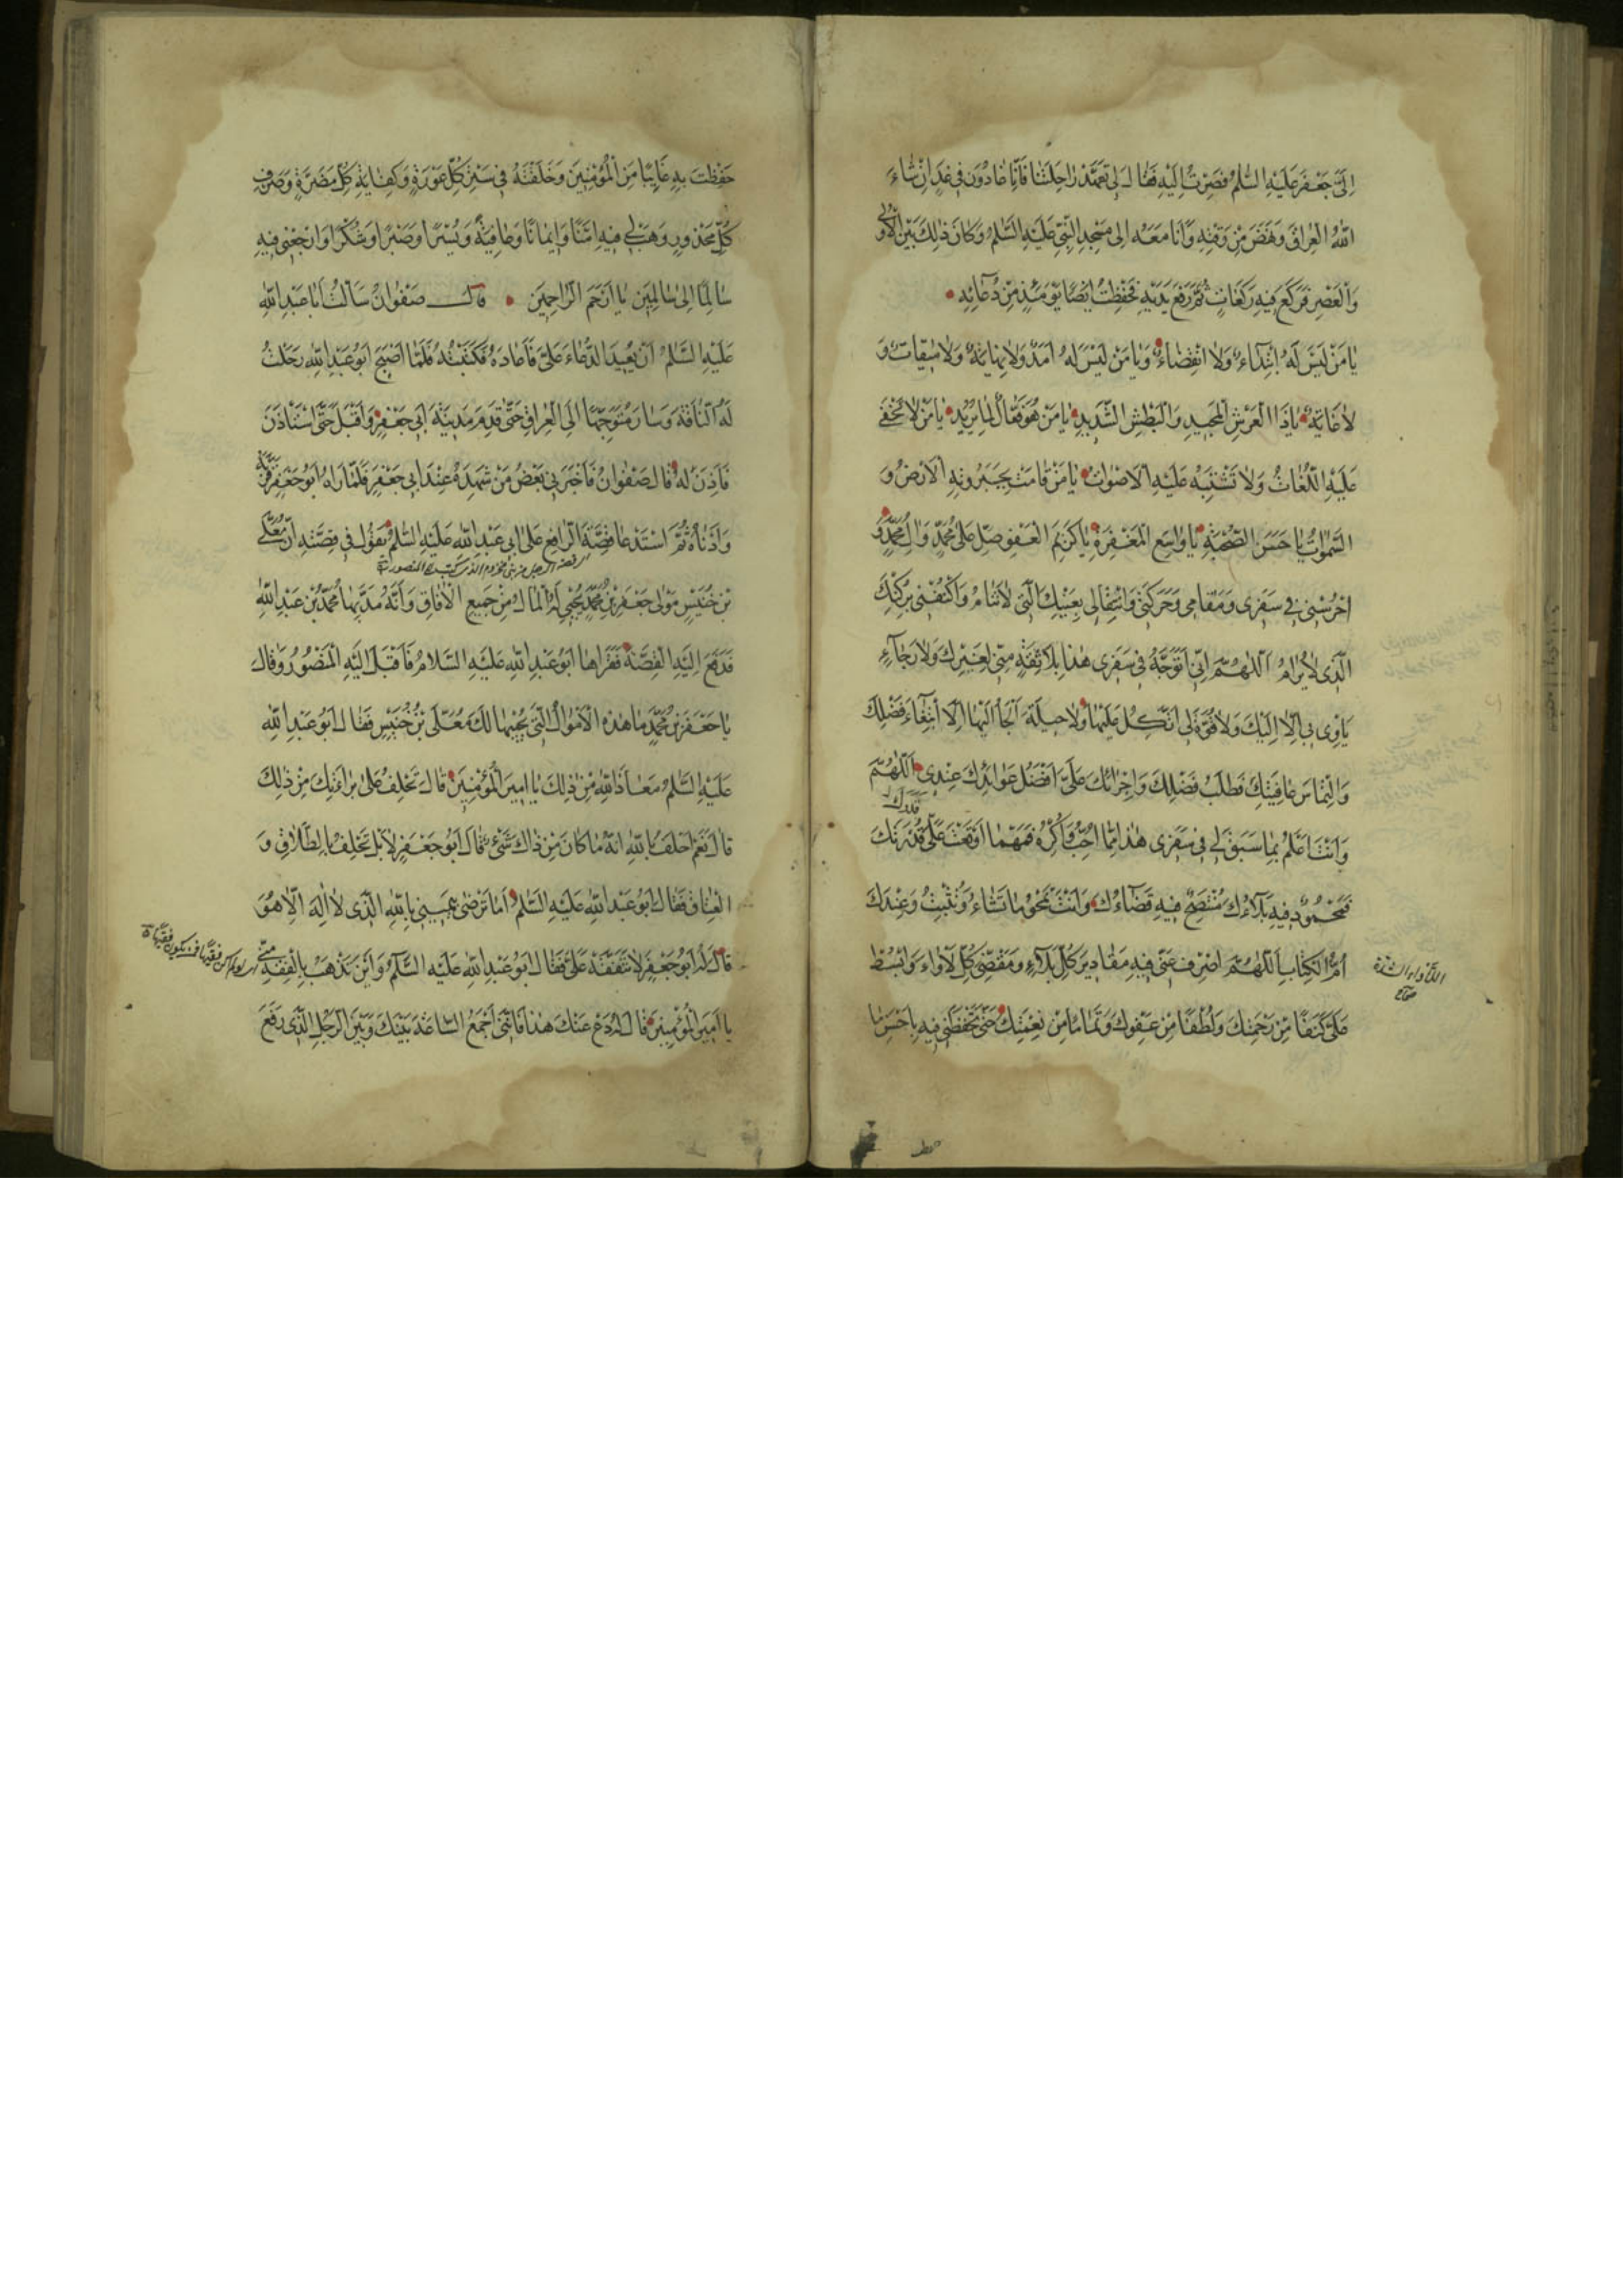 اِلىَّ جَعْفَر عَلَيْهِ السَّلٰمُ فَصِرْتُ اِلَيْهِ فَقٰالَ لى تَعَمَّدْ رٰاحِلَتَنٰا فَاِنّٰا غٰادُوْنَ فى غَدٍ اِنْ شٰاءَ
اللهُ الْعِرٰاقَ وَنَهَضَ مِنْ وَقْتِهِ وَاَنَا مَعَهُ اِلى مَسْجِدِ النَّبِيِّ عَلَيْهِ السَّلٰمُ وَكٰانَ ذٰلِكَ بَيْنَ الْاُولٰى
وَالْعَصْرِ فَرَكَعَ فيهِ رَكَعٰاتٍ ثُمَّ رَفَعَ يَدَيْهِ فَحَفِظْتُ اَيْضًا يَوْمَئِذٍ مِنْ دُعٰائِهِ
يٰا مَنْ لَيْسَ لَهُ ابْتِدٰاءٌ وَلَا انْقِضٰاءٌ وَيٰا مَنْ لَيْسَ لَهُ اَمَدٌ وَلٰا نِهٰايَةٌ وَلٰا ميقٰاتٌ وَ
لٰا غٰايَةٌ يٰا ذَا الْعَرْشِ الْمَجيدِ وَالْبَطْشِ الشَّديدِ يٰا مَنْ هُوَ فَعّٰالٌ لِمٰا يُريدُ يٰا مَنْ لٰا تَخْفىٰ
عَلَيْهِ اللُّغٰاتُ وَلٰا تَشْتَبِهُ عَلَيْهِ الْاَصْوٰاتُ يٰا مَنْ قٰامَتْ بِجَبَرُوتِهِ الْاَرْضُ وَ
السَّمٰوٰاتُ يٰا حَسَنَ الصُّحْبَةِ يٰا وٰاسِعَ الْمَغْفِرَةِ يٰا كَريمَ الْعَفْوِ صَلِّ عَلىٰ مُحَمَّدٍ وَاٰلِ مُحَمَّدٍ وَ
احْرُسْنى فى سَفَرى وَمَقٰامى وَحَرَكَتى وَانْتِقٰالى بِعَيْنِكَ الَّتى لٰا تَنٰامُ وَاكْنُفْنى بِرُكْنِكَ
الَّذى لٰا يُرٰامُ اَللّٰهُمَّ اِنّى اَتَوَجَّهُ فى سَفَرى هٰذٰا بِلٰا ثِقَةٍ مِنّى لِغَيْرِكَ وَلٰا رَجٰاءٍ
يَاْوى بى اِلّٰا اِلَيْكَ وَلٰا قُوَّةَ لى اَتَّكِلُ عَلَيْهٰا وَلٰا حيلَةَ اَلْجَأُ اِلَيْهٰا اِلَّا ابْتِغٰاءَ فَضْلِكَ
وَالْتِمٰاسَ عٰافِيَتِكَ وَطَلَبَ فَضْلِكَ وَاِجْرٰائَكَ عَلىَّ اَفْضَلَ عَوٰائِدِكَ عِنْدى اَللّٰهُمَّ
وَاَنْتَ اَعْلَمُ بِمٰا سَبَقَ لى فى سَفَرى هٰذٰا مِمّٰا اُحِبُّ وَاَكْرَهُ فَمَهْمٰا اَوْقَعْتَ عَلَيَّ قُدْرَتَكَ
فَمَحْمُودٌ فيهِ بَلٰاءُكَ مُنْتَصِحٌ فيهِ قَضٰاءُكَ وَاَنْتَ تَمْحُو مٰا تَشٰاءُ وَتُثْبِتُ وَعِنْدَكَ
اُمُّ الْكِتٰابِ اَللّٰهُمَّ اصْرِفْ عَنّى فيهِ مَقٰاديرَ كُلِّ بَلٰاءٍ وَمَقْضِىَّ كُلِّ لَاْوٰاءَ وَابْسُطْ
اللأواء الشدة
صحاح
عَلىَّ كَنَفًا مِنْ رَحْمَتِكَ وَلُطْفًا مِنْ عَفْوِكَ وَتَمٰامًا مِنْ نِعْمَتِكَ حَتّٰى تَحْفَظَنى فيهِ بِاَحْسَنِ مٰا
حَفِظْتَ بِهِ غٰائِبًا مِنَ الْمُؤْمِنينَ وَخَلَفْتَهُ فى سَتْرِ كُلِّ عَوْرَةٍ وَكِفٰايَةِ كُلِّ مَضَرَّةٍ وَصَرْفِ
كُلِّ مَحْذُورٍ وَهَبْ لى فيهِ اَمْنًا وَايمٰانًا وَعٰافِيَةً وَيُسْرًا وَصَبْرًا وَشُكْرًا وَارْجِعْنى فيهِ
سٰالِمًا اِلىٰ سٰالِمينَ يٰا اَرْحَمَ الرّٰاحِمينَ قٰالَ صَفْوٰانُ سَاَلْتُ اَبٰا عَبْدِ اللهِ
عَلَيْهِ السَّلٰمُ اَنْ يُعيدَ الدُّعٰاءَ عَلَىَّ فَاَعٰادَهُ فَكَتَبْتُهُ فَلَمّٰا اَصْبَحَ اَبُو عَبْدِ اللهِ رَحَلْتُ
لَهُ النّٰاقَةَ وَسٰارَ مُتَوَجِّهًا اِلَى الْعِرٰاقِ حَتّٰى قَدِمَ مَدينَةَ اَبى جَعْفَرٍ وَاَقْبَلَ حَتَّى اسْتَاْذَنَ
فَاَذِنَ لَهُ قٰالَ صَفْوٰانُ فَاَخْبَرَنى بَعْضُ مَنْ شَهِدَهُ عِنْدَ اَبى جَعْفَرٍ فَلَمّٰا رَاٰهُ اَبُو جَعْفَرٍ قَرَّبَهُ
وَاَدْنٰاهُ ثُمَّ اسْتَدْعٰا قِصَّةَ الرّٰافِعِ عَلىٰ اَبى عَبْدِ اللهِ عَلَيْهِ السَّلٰمُ يَقُولُ فى قِصَّتِهِ اَنَّ مُعَلَّى
بْنَ خُنَيْسٍ مَوْلىٰ جَعْفَرِ بْنِ مُحَمَّدٍ يُجْبى لَهُ الْمٰالَ مِنْ جَميعِ الْاٰفٰاقِ وَاَنَّهُ مَدَّ بِهٰا مُحَمَّدَ بْنَ عَبْدِ اللهِ
فَدَفَعَ اِلَيْهِ الْقِصَّةَ فَقَرَاَهٰا اَبُو عَبْدِ اللهِ عَلَيْهِ السَّلٰامُ فَاَقْبَلَ اِلَيْهِ الْمَنْصُورُ وَقٰالَ
يٰا جَعْفَرَ بْنَ مُحَمَّدٍ مٰا هٰذِهِ الْاَمْوٰالُ الَّتى يُجْبيهٰا لَكَ مُعَلَّى بْنُ خُنَيْسٍ فَقٰالَ اَبُو عَبْدِ اللهِ
عَلَيْهِ السَّلٰمُ مَعٰاذَ اللهِ مِنْ ذٰلِكَ يٰا اَميرَ الْمُؤْمِنينَ قٰالَ تَحْلِفُ عَلىٰ بَرٰاءَتِكَ مِنْ ذٰلِكَ
قٰالَ نَعَمْ اَحْلِفُ بِاللهِ اَنَّهُ مٰا كٰانَ مِنْ ذٰلكَ شَىْءٌ قٰالَ اَبُو جَعْفَرٍ لٰا بَلْ تَحْلِفُ بِالطَّلٰاقِ وَ
الْعِتٰاقِ فَقٰالَ اَبُو عَبْدِ اللهِ عَلَيْهِ السَّلٰمُ اَمٰا تَرْضىٰ بِيَمينى بِاللهِ الَّذى لٰا اِلٰهَ اِلّٰا هُوَ
قٰالَ لَهُ اَبُو جَعْفَرٍ لٰا تَتَفَقَّهْ عَلَىَّ فَقٰالَ اَبُو عَبْدِ اللهِ عَلَيْهِ السَّلٰمُ وَاَيْنَ يَذْهَبُ بِالْفِقْهِ مِنّى
يٰا اَميرَ الْمُؤْمِنينَ قٰالَ لَهُ دَعْ عَنْكَ هٰذٰا فَاِنّى اَجْمَعُ السّٰاعَةَ بَيْنَكَ وَبَيْنَ الرَّجُلِ الَّذى رَفَعَ